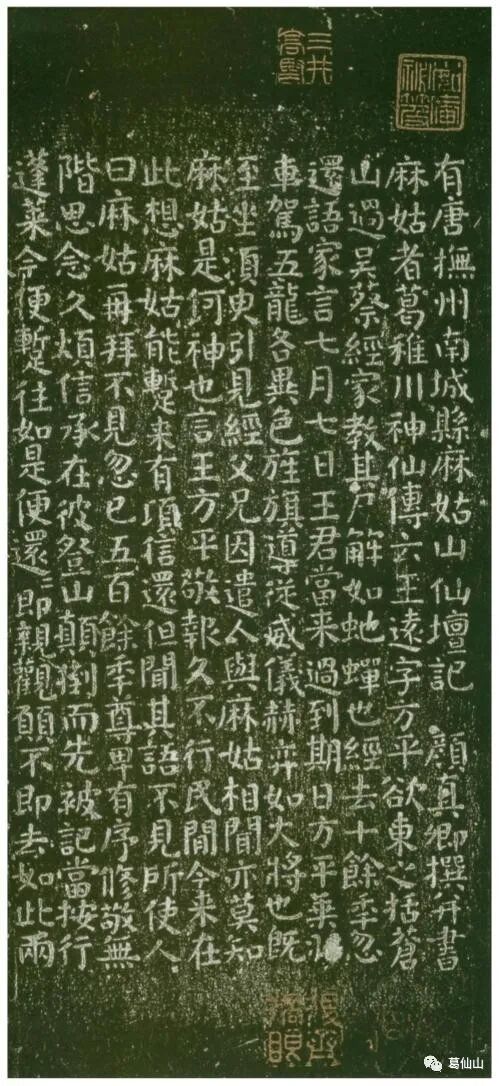 三井高堅
有唐撫州南城縣麻姑山仙壇記　顏真卿撰并書
麻姑者葛稚川神仙傳云王遠字方平欲東之括蒼
山過吳蔡經家教其尸解如虵蟬也經去十餘秊忽
還語家言七月七日王君當来過到期日方平乘羽
車駕五龍各異色旌旗導從威儀赫弈如大將也既
至坐須臾引見經父兄因遣人與麻姑相聞亦莫知
麻姑是何神也言王方平敬報久不行民間今来在
此想麻姑能蹔来有頃信還但聞其語不見所使人
曰麻姑再拜不見忽已五百餘秊尊卑有序修敬無
階思念久煩信承在彼登山顛倒而先被記當按行
蓬萊今便蹔往如是便還〻即親觀願不即去如此兩
葛仙山